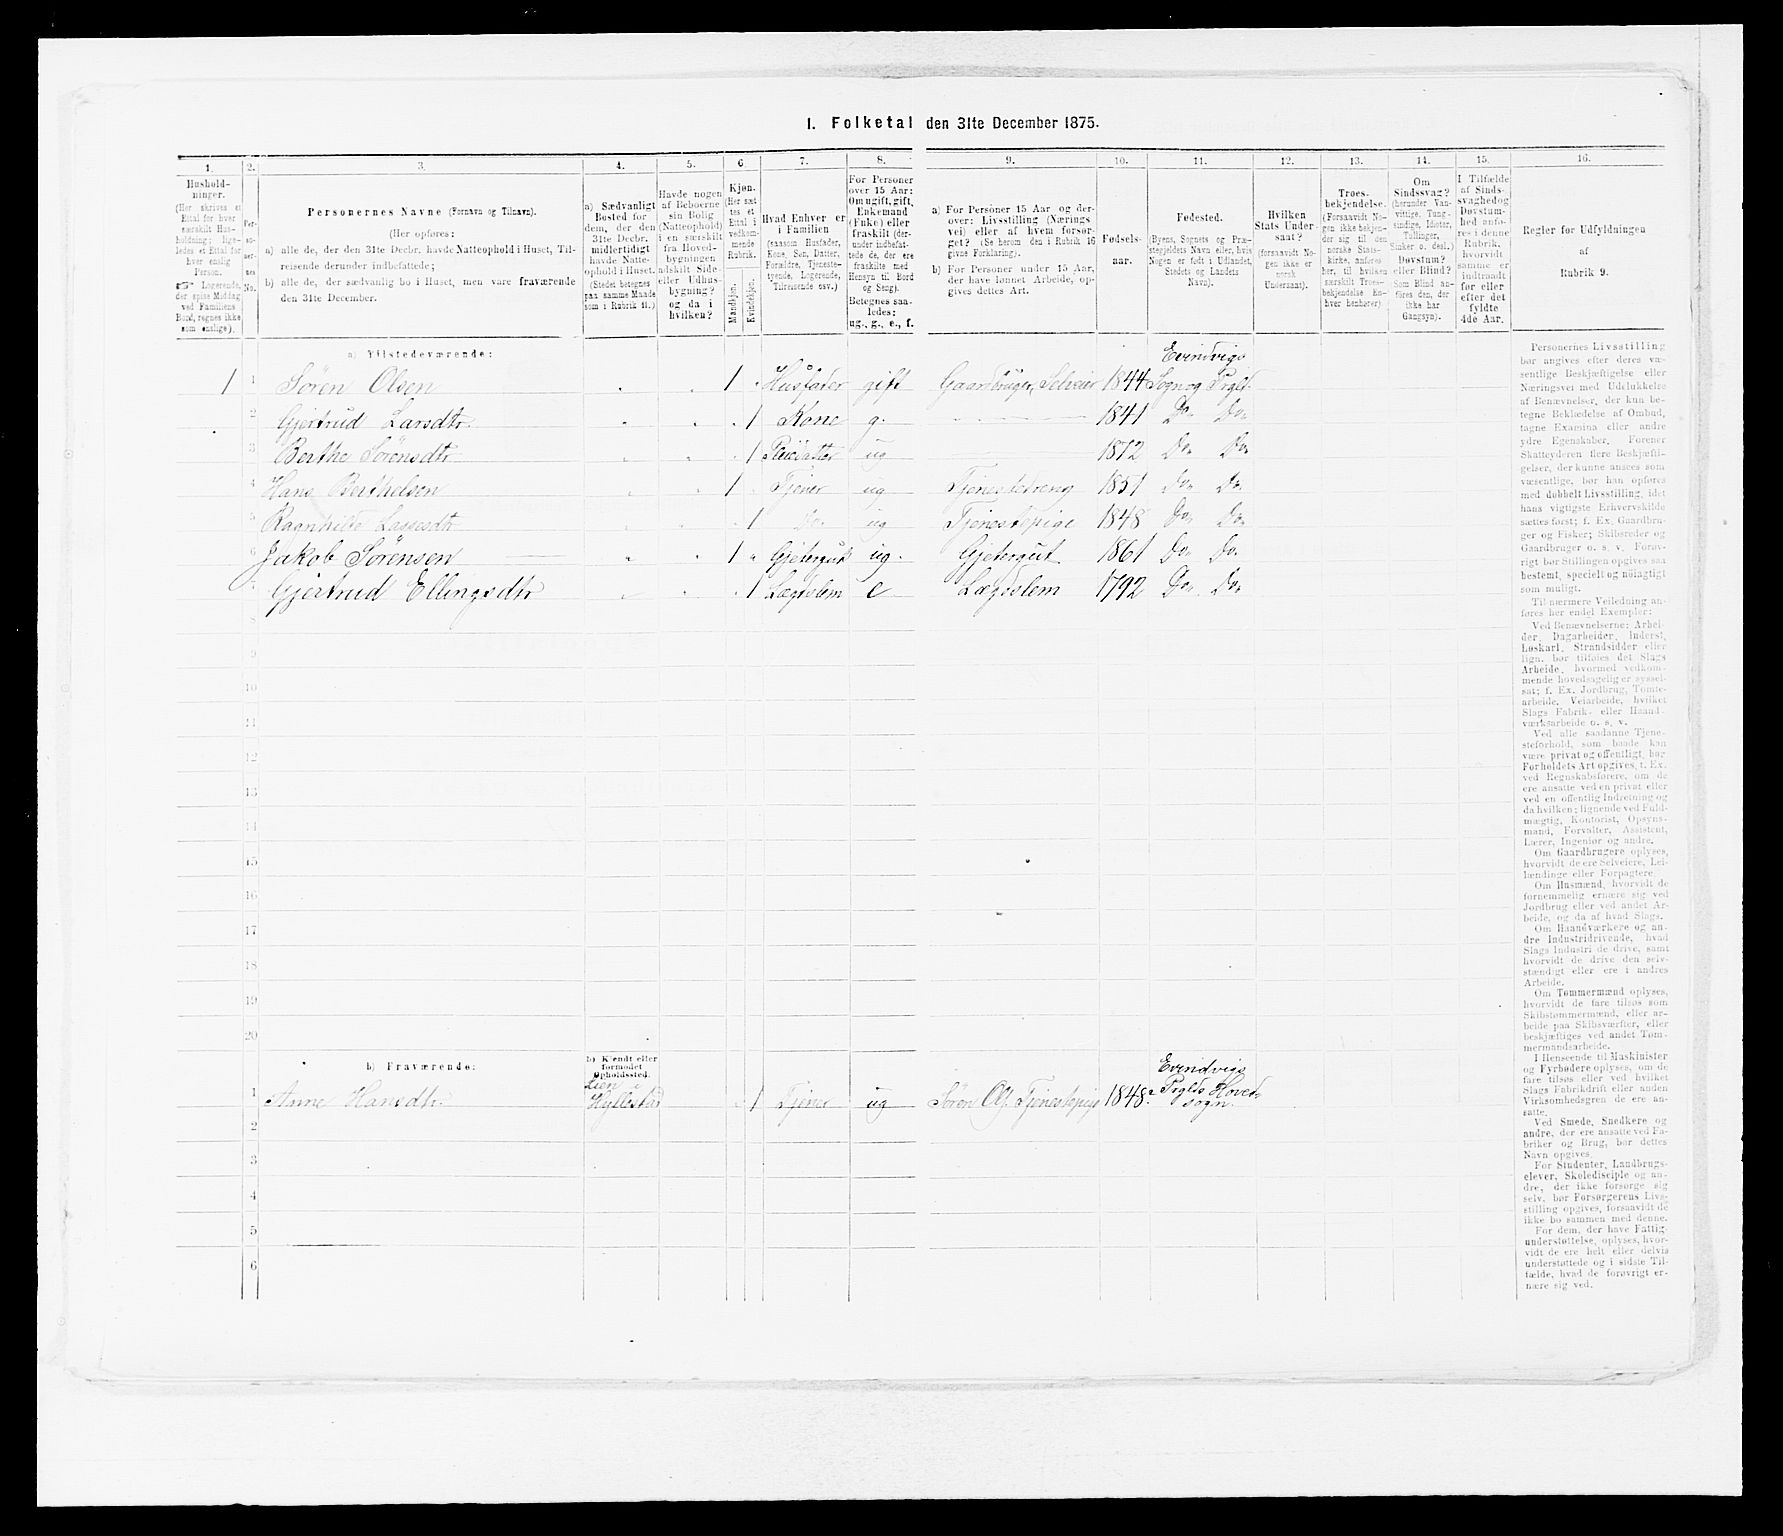 I. Folketal den 31te December 1875.
1. 2. 3. 4. 5. 6. 7. 8. 9. 10. 11. 12. 13. 14. 15. 16.
Hushold-
ninger.
(Her skrives et
Ettal for hver
særskilt Hus-
holdning; lige-
ledes et Ettal for
hver enslig
Person.
Logerende,
der spise Middag
ved Familiens
Bord, regnes ikke
som enslige).
Per-
so-
ner-
nes
No.
Personernes Navne (Fornavn og Tilnavn).
(Her opføres:
a) alle de, der den 31te Decbr. havde Natteophold i Huset, Til-
reisende derunder indbefattede;
b) alle de, der sædvanlig bo i Huset, men vare fraværende
den 31te December.
a) Sædvanligt
Bosted for
dem, der den
31te Decbr.
midlertidigt
havde Natte-
ophold i Huset.
(Stedet betegnes
paa samme Maade
som i Rubrik 11.)
Havde nogen
af Beboerne
sin Bolig
(Natteophold)
i en særskilt
fra Hoved-
bygningen
adskilt Side-
eller Udhus-
bygning?
og da i
hvilken?
Kjøn.
(Her sæt-
tes et
Ettal i
vedkom-
mende
Rubrik.
Mandkjøn.
Kvindekjøn.
Hvad Enhver er
i Familien
(saasom Husfader,
Kone, Søn, Datter,
Forældre, Tjeneste-
tyende, Logerende,
Tilreisende osv.)
For Personer
over 15 Aar:
Om ugift, gift,
Enkemand
(Enke) eller
fraskilt (der-
under indbefat-
tede de, der ere
fraskilte med
Hensyn til Bord
og Seng).
Betegnes saa-
ledes:
ug., g., e., f.
a) For Personer 15 Aar og der-
over: Livsstilling (Nærings-
vei) eller af hvem forsør-
get? (Se herom den i Rubrik 16
givne Forklaring).
b) For Personer under 15 Aar,
der have lønnet Arbeide, op-
gives dettes Art.
Fødsels-
aar.
Fødested.
(Byens, Sognets og Præ-
stegjeldets Navn eller, hvis
Nogen er født i Udlandet,
Stedets og Landets
Navn).
Hvilken
Stats Under-
saat?
(forsaavidt No-
gen ikke er
norsk
Undersaat).
Troes-
bekjendelse.
(Forsaavidt No-
gen ikke bekjen-
der sig til den
norske Stats-
kirke, anføres
her, til hvilken
særskilt Troes-
bekjendelse En-
hver henhører)
Om
Sindssvag?
(herunder Van-
vittige, Tung-
sindige, Idioter,
Tullinger,
Sinker o. desl.)
Døvstum?
eller Blind?
(Som Blind an-
føres den, der
ikke har
Gangsyn).
I Tilfælde
af Sinds-
svaghed og
Døvstum-
hed anfø-
res i denne
Rubrik,
hvorvidt
samme er
indtraadt
før eller
efter det
fyldte
4de Aar.
Regler for Udfyldningen
af
Rubrik 9.
a) Tilstedeværende:
Evindvigs
1 1 Søren Olsen 1 Husfader gift Gaardbruger, Selveier 1844 Sogn og Prgld.
2 Gjertrud Larsdtr 1 Kone g. 1841 Do Do
3 Berthe Sørensdtr 1 Pleiedatter ug 1872 Do Do
4 Hans Berthelsen 1 Tjener ug Tjenestedreng 1851 Do Do
5 Ragnhilde Lassesdtr 1 Do ug Tjenestepige 1848 Do Do
6 Jakob Sørensen 1 Gjætergut ug. Gjetergut 1861 Do Do
7 Gjertrud Ellingsdtr 1 Lægdslem e Lægdslem 1792 Do Do
8
9
10
11
12
13
14
15
16
17
18
19
20
b) Fraværende:
b) Kjendt eller
formodet
Opholdssted.
Evindvigs
Lien i
1 Anne Hansdtr. Hyllestad 1 Tjener ug Søren Ols. Tjenestepige 1848 Prglds Hoved-
sogn.
2
3
4
5
6
Personernes Livsstilling
bør angives efter deres væ-
sentlige Beskjæftigelse eller
Næringsvei med Udelukkelse
af Benævnelser, der kun be-
tegne Beklædelse af Ombud,
tagne Examina eller andre
ydre Egenskaber. Forener
Skatteyderen flere Beskjæfti-
gelser, der kunne ansees som
væsentlige, bør han opføres
med dobbelt Livsstilling, idet
hans vigtigste Erhvervskilde
sættes først; f. Ex. Gaardbru-
ger og Fisker; Skibsreder og
Gaardbruger o. s. v. Forøv-
rigt bør Stillingen opgives saa
bestemt, specielt og nøiagtigt
som muligt.
Til nærmere Veiledning an-
føres her endel Exempler:
Ved Benævnelserne: Arbei-
der, Dagarbeider, Inderst,
Løskarl, Strandsidder eller
lign. bør tilføies det Slags
Arbeide, hvormed vedkom-
mende hovedsagelig er syssel-
sat; f. Ex. Jordbrug, Tomte-
arbeide, Veiarbeide, hvilket
Slags Fabrik- eller Haand-
værksarbeide o. s. v.
Ved alle saadanne Tjene-
steforhold, som baade kan
være privat og offentligt, bør
Forholdets Art opgives, t. Ex.
ved Regnskabsførere, om de
ere ansatte ved en privat eller
ved en offentlig Indretning og
da hvilken; lignende ved Fuld-
mægtig, Kontorist, Opsyns-
mand, Forvalter, Assistent,
Lærer, Ingeniør og andre.
Om Gaardbrugere oplyses,
hvorvidt de ere Selveiere, Lei-
lændinge eller Forpagtere.
Om Husmænd, hvorvidt de
fornemmelig ernære sig ved
Jordbrug eller ved andet Ar-
beide, og da af hvad Slags.
Om Haandværkere og an-
dre Industridrivende, hvad
Slags Industri de drive, samt
hvorvidt de drive den selv-
stændigt eller ere i andres
Arbeide.
Om Tømmermænd oplyses,
hvorvidt de fare tilsøs som
Skibstømmermænd, eller ar-
beide paa Skibsværfter, eller
beskjæftiges ved andet Tøm-
mermandsarbeide.
I Henseende til Maskinister
og Fyrbødere oplyses, om de
fare tilsøs eller ved hvilket
Slags Fabrikdrift eller anden
Virksomhedsgren de ere an-
satte.
Ved Smede, Snedkere og
andre, der ere ansatte ved Fa-
briker og Brug, bør dettes
Navn opgives.
For Studenter, Landbrugs-
elever, Skoledisciple og an-
dre, der ikke forsørge sig
selv, bør Forsørgerens Livs-
stilling opgives, forsaavidt de
ikke bo sammen med denne.
For dem, der have Fattig-
understøttelse, oplyses, hvor-
vidt de ere helt eller delvis
understøttede og i sidste Til-
fælde, hvad de forøvrigt er-
nære sig ved.